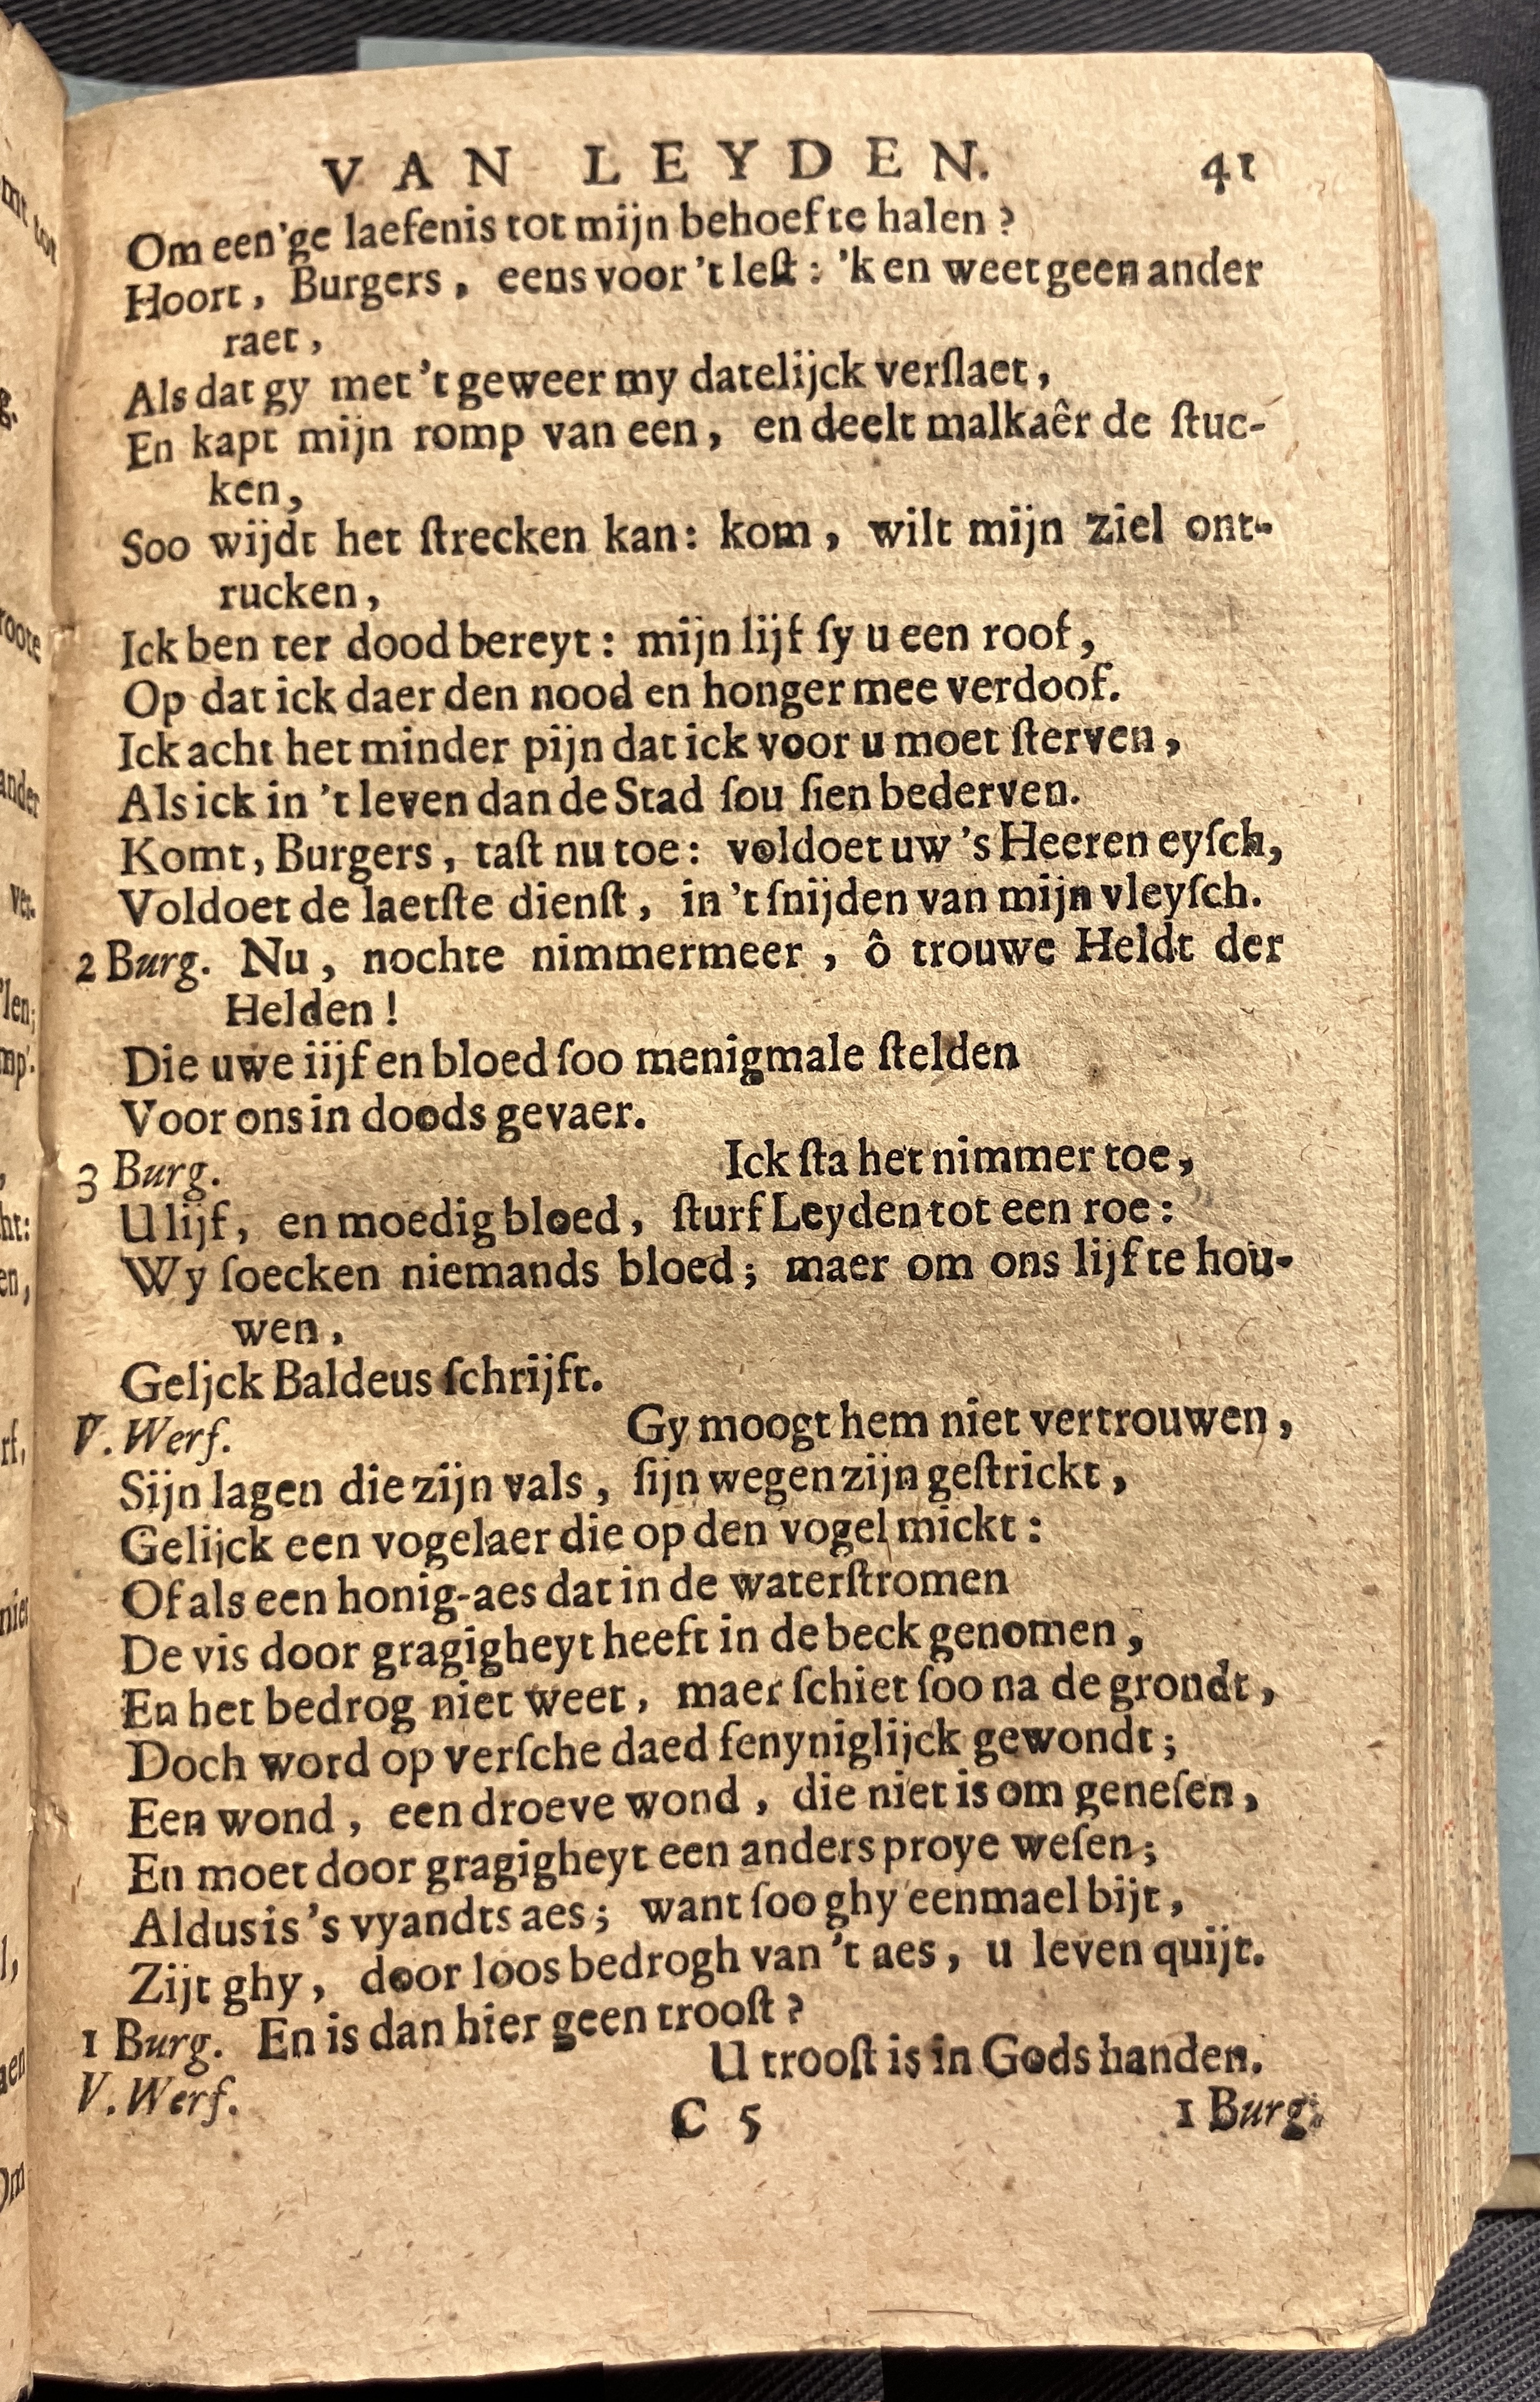 VAN LEYDEN. 41
Om een'ge laefenis tot mijn behoef te halen?
Hoort, Burgers, eens voor 't leſt: 'k en weet geen ander
raet,
Als dat gy met 't geweer my datelijck verſlaet,
En kapt mijn romp van een, en deelt malkaêr de ſtuc-
ken,
Soo wijdt het ſtrecken kan: kom, wilt mijn ziel ont-
rucken,
Ick ben ter dood bereyt: mijn lijf ſy u een roof,
Op dat ick daer den nood en honger mee verdoof.
Ick acht het minder pijn dat ick voor u moet ſterven,
Als ick in 't leven dan de Stad ſou ſien bederven.
Komt, Burgers, taſt nu toe: voldoet uw 's Heeren eyſch,
Voldoet de laetſte dienſt, in 't ſnijden van mijn vleyſch.
2 Burg. Nu, nochte nimmermeer, ô trouwe Heldt der
Helden!
Die uwe iijf en bloed ſoo menigmale ſtelden
Voor ons in doods gevaer.
3 Burg. Ick ſta het nimmer toe,
U lijf, en moedig bloed, ſturf Leyden tot een roe:
Wy ſoecken niemands bloed; maer om ons lijf te hou-
wen,
Geljck Baldeus ſchrijft.
V. Werf. Gy moogt hem niet vertrouwen,
Sijn lagen die zijn vals, ſijn wegen zijn geſtrickt,
Gelijck een vogelaer die op den vogel mickt:
Of als een honig-aes dat in de waterſtromen
De vis door gragigheyt heeft in de beck genomen,
En het bedrog niet weet, maer ſchiet ſoo na de grondt,
Doch word op verſche daed fenyniglijck gewondt;
Een wond, een droeve wond, die niet is om geneſen,
En moet door gragigheyt een anders proye weſen;
Aldus is 's vyandts aes; want ſoo ghy eenmael bijt,
Zijt ghy, door loos bedrogh van 't aes, u leven quijt.
1 Burg. En is dan hier geen trooſt?
V. Werf. U trooſt is in Gods handen.
C 5 1 Burg.